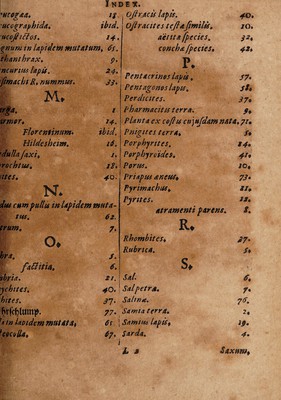 INDEX.
ucogaa. 11.
ucographida. ibid.
ucostictos. 14.
gnum in lapidem mutatum, 65.
thanthrax. 9.
ncurius lapis. 24.
simachi R. nummus. 33.
M.
erga. 1.
rmor. 14.
Florentinum. ibid.
Hildesheim. 16.
dulla saxi. 17.
rochtus. 18.
ites. 40.
N.
dus cum pullu in lapidem muta-
tus. 62.
trum. 7.
O.
bra. 5.
factitia. 6.
bria. 21.
ychites. 40.
hites. 37.
hrschlump. 77.
in lapidem mutata, 61.
teocolla. 67.
Ostracis lapis. 40.
Ostracites testæ similis. 10.
aëtitæ species 32.
conchæ species. 42.
P.
Pentacrinos lapis. 57.
Pentagonos lapis. 58.
Perdicites. 37.
Pharmacitis terra. 9.
Planta ex costu cujusdam nata. 71.
Pnigites terra. 5.
Porphyrites. 24.
Porphyroides. 41.
Porus. 10.
Priapus aneus. 73.
Pyrimachus. 21.
Pyrites. 12.
atramenti parens. 8.
R.
Rhombites. 27.
Rubrica. 5.
S.
Sal. 6.
Salpetra. 7.
Salinæ. 76.
Samia terra. 2.
Samius lapis. 19.
Sarda. 4.
L 2 Saxum.